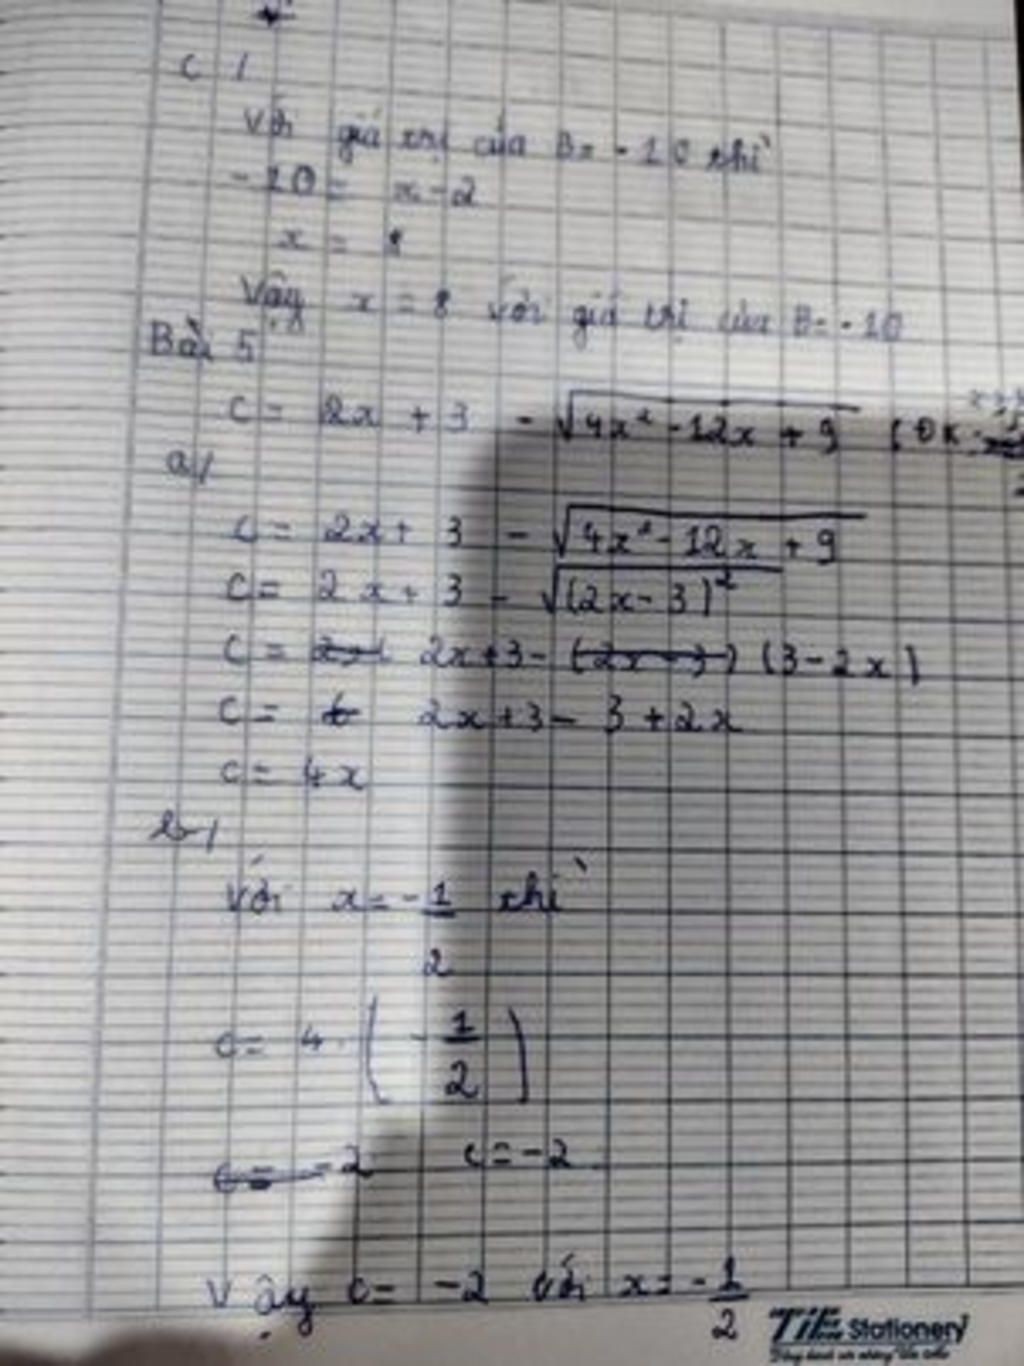 c /
Với giá trị của B = -10 thì
-10 = x - 2
x = 8
Vậy x = 8 với giá trị của B = -10
Bài 5
C = 2x + 3 - √4x² - 12x + 9 (ĐK:
a /
C = 2x + 3 - √4x² - 12x + 9
C = 2x + 3 - √(2x - 3)²
C = 2x + 3 - (2x - 3) (3 - 2x)
C = 2x + 3 - 3 + 2x
C = 4x
b /
Với x = -1/2 thì
C = 4 . (-1/2)
C = -2 C = -2
Vậy C = -2 với x = -1/2
TiE Stationery